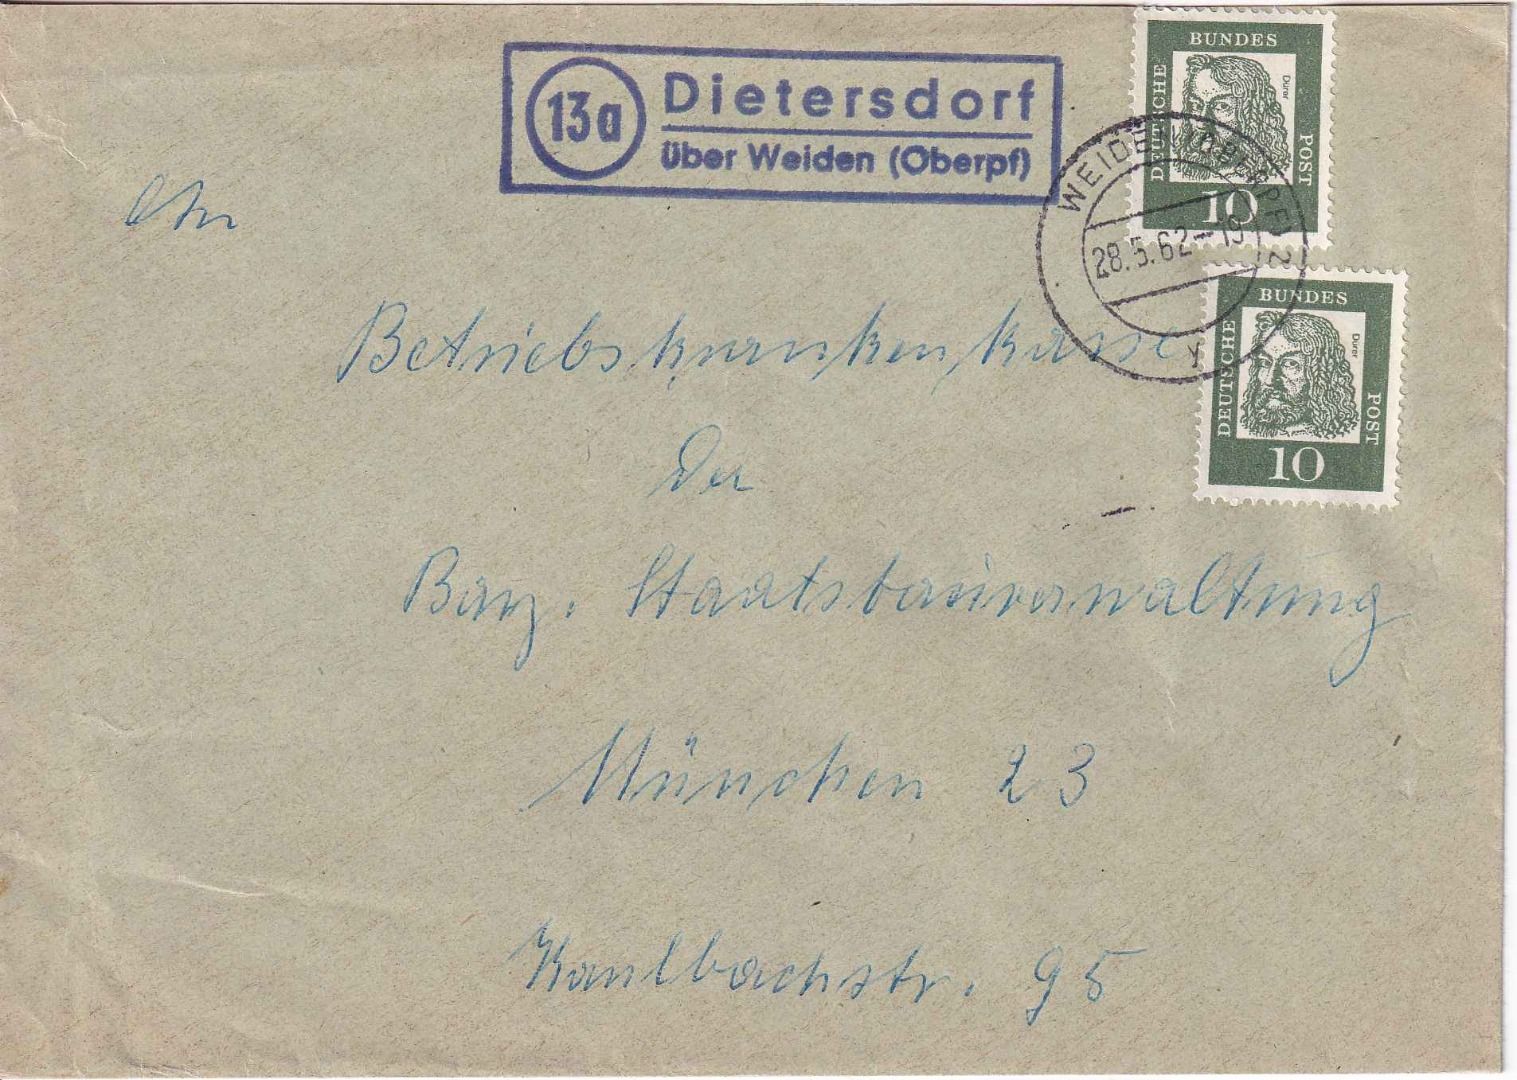 13a
Dietersdorf
über Weiden (Oberpf)
DEUTSCHE BUNDES POST
Dürer
10
WEIDEN (OBERPF) 2
28.5.62-19
y
DEUTSCHE BUNDES POST
Dürer
10
An
Betriebskrankenkasse
der
Bay. Staatsbauverwaltung
München 23
Kaulbachstr. 95